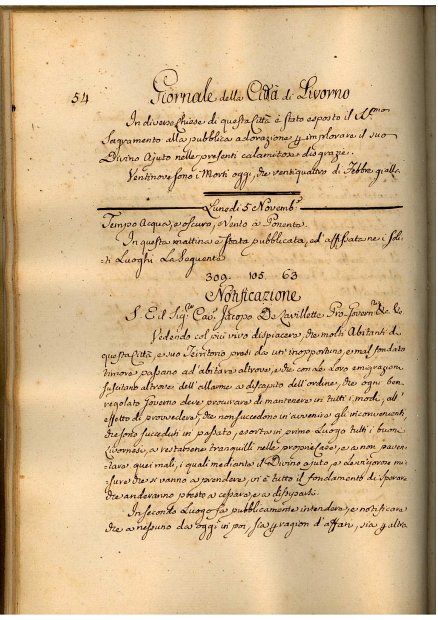 54
Giornale della Città di Livorno
In diverse Chiese di questa Città è stato esposto il SS.mo
Sagramento alla pubblica adorazione p implorare il suo
Divino Ajuto nelle presenti calamitose disgrazie.
Ventinove sono i Morti oggi, che ventiquattro di Febbre gialla.
Lunedi 5 Novemb.e
Tempo Acqua, e oscuro, e Vento a Ponente.
In questa mattina è stata pubblicata, ed affissata ne i Soli-
ti Luoghi La Seguente
309. 105. 63
Notificazione
S. E. il Sig.re Cav.e Jacopo De Lavillette Pro-Govern.re &c. &c.
Vedendo col più vivo dispiacere, che molti Abitanti di
questa Città, e suo Territorio presi da un' inopportuno, e mal fondato
timore passano ad abitare altrove, e che con la Loro emigrazione
suscitano altrove dell' allarme a discapito dell' ordine, che ogni ben
regolato Governo deve procurare di mantenere in tutti i modi, all'
effetto di provvedere, che non succedono in avvenire gli inconvenienti,
che sono succeduti in passato, esorta in primo Luogo tutti i buoni
Livornesi, a restarsene tranquilli nelle proprie Case, e a non paven-
tare quei mali, i quali mediante il Divino ajuto, e le vigorose mi-
sure che si vanno a prendere, vi è tutto il fondamento di sperare
che anderanno presto a cessare, e a dissiparsi.
In secondo Luogo fà pubblicamente intendere, e notificare
che a nessuno da oggi in poi, sia p ragion d'affari, sia p altra